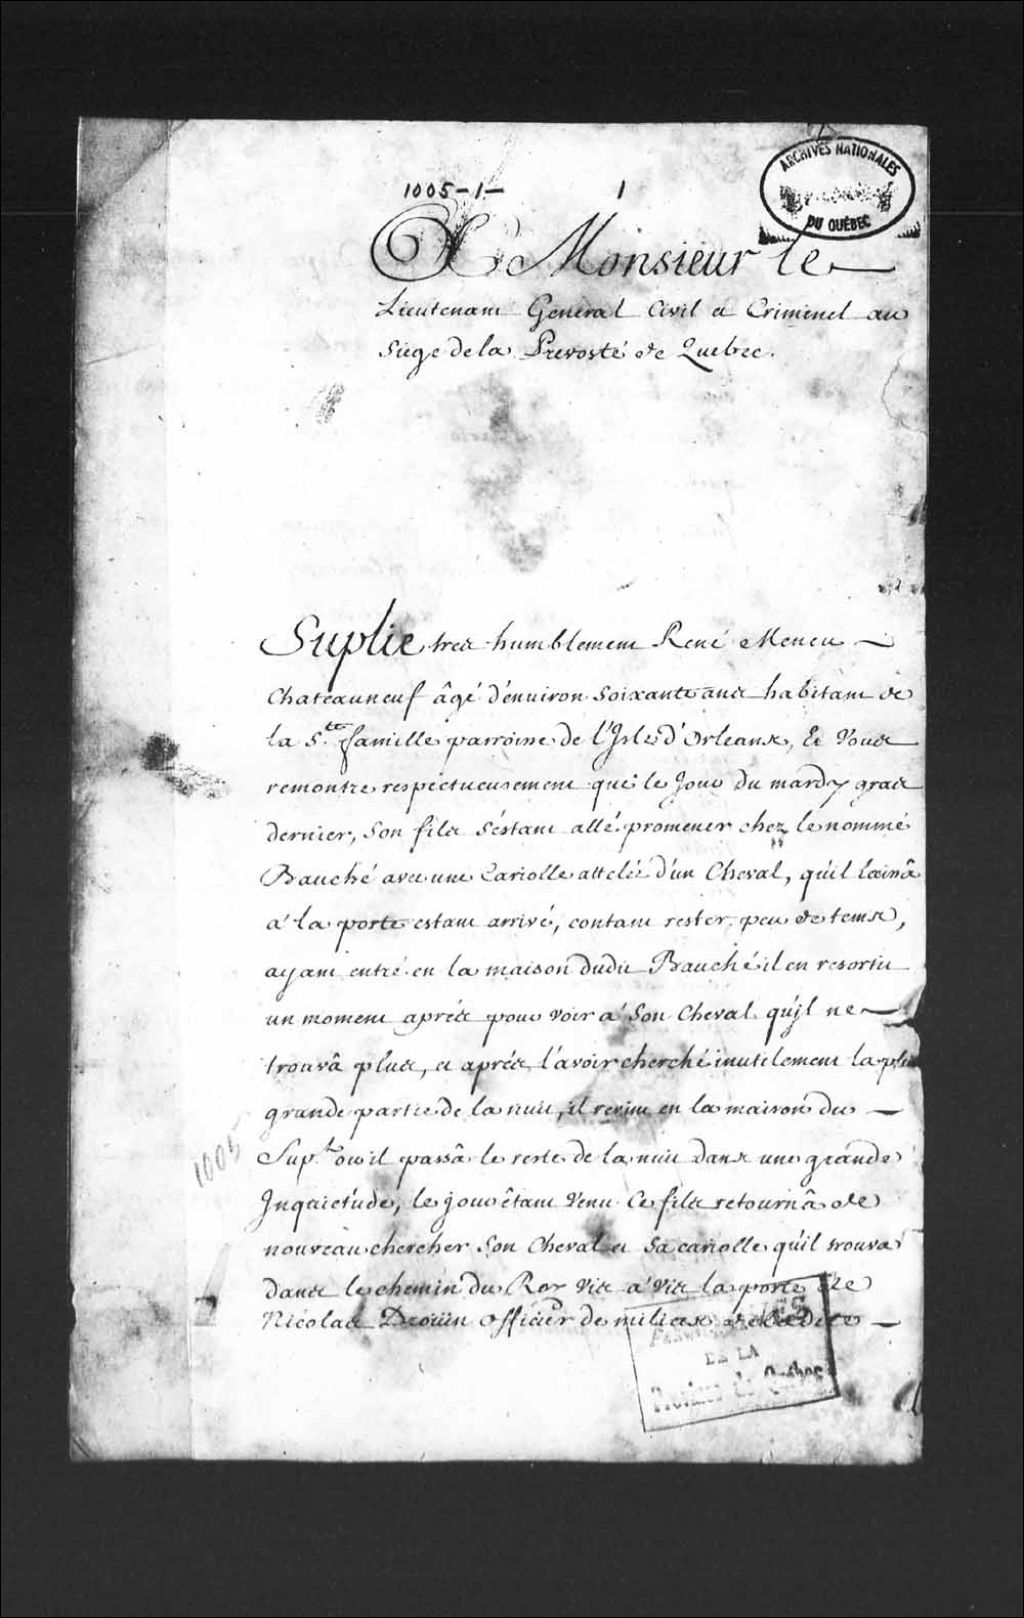 1005-1- 1
ARCHIVES NATIONALES
DU QUÉBEC
A Monsieur le
Lieutenant General Civil et Criminel au
Siege de la Prevosté de Quebec.
Suplie tres humblement René Meneu
Chateauneuf âgé d'enuiron soixante ans habitant de
la S.te famille parroisse de l'Isle d'Orleans, Et Vous
remontre respectueusement que le Jour du mardy gras
dernier, Son fils s'éstant allé promener chez le nommé
Bauché avec une Cariolle attelée d'un Cheval, qu'il laissâ
a' la porte estant arrivé, contant rester peu de tems,
ayant entré en la maison dudit Bauché il en resortit
un moment aprés pour voir a' Son Cheval qu'jl ne
trouvâ plus, et aprés l'avoir cherché inutilement la plus
grande partie de la nuit, il revint en la maison du
Sup.t ou il passâ le reste de la nuit dans une grande
Jnquietude, le jour êtant Venu Ce fils retournâ de
nouveau chercher Son Cheval et Sa cariolle qu'il trouva
dans le chemin du Roy vis a' vis la porte de
Nicolas Droüin officier de milices de la dite
1005
DE LA
Province de Québec